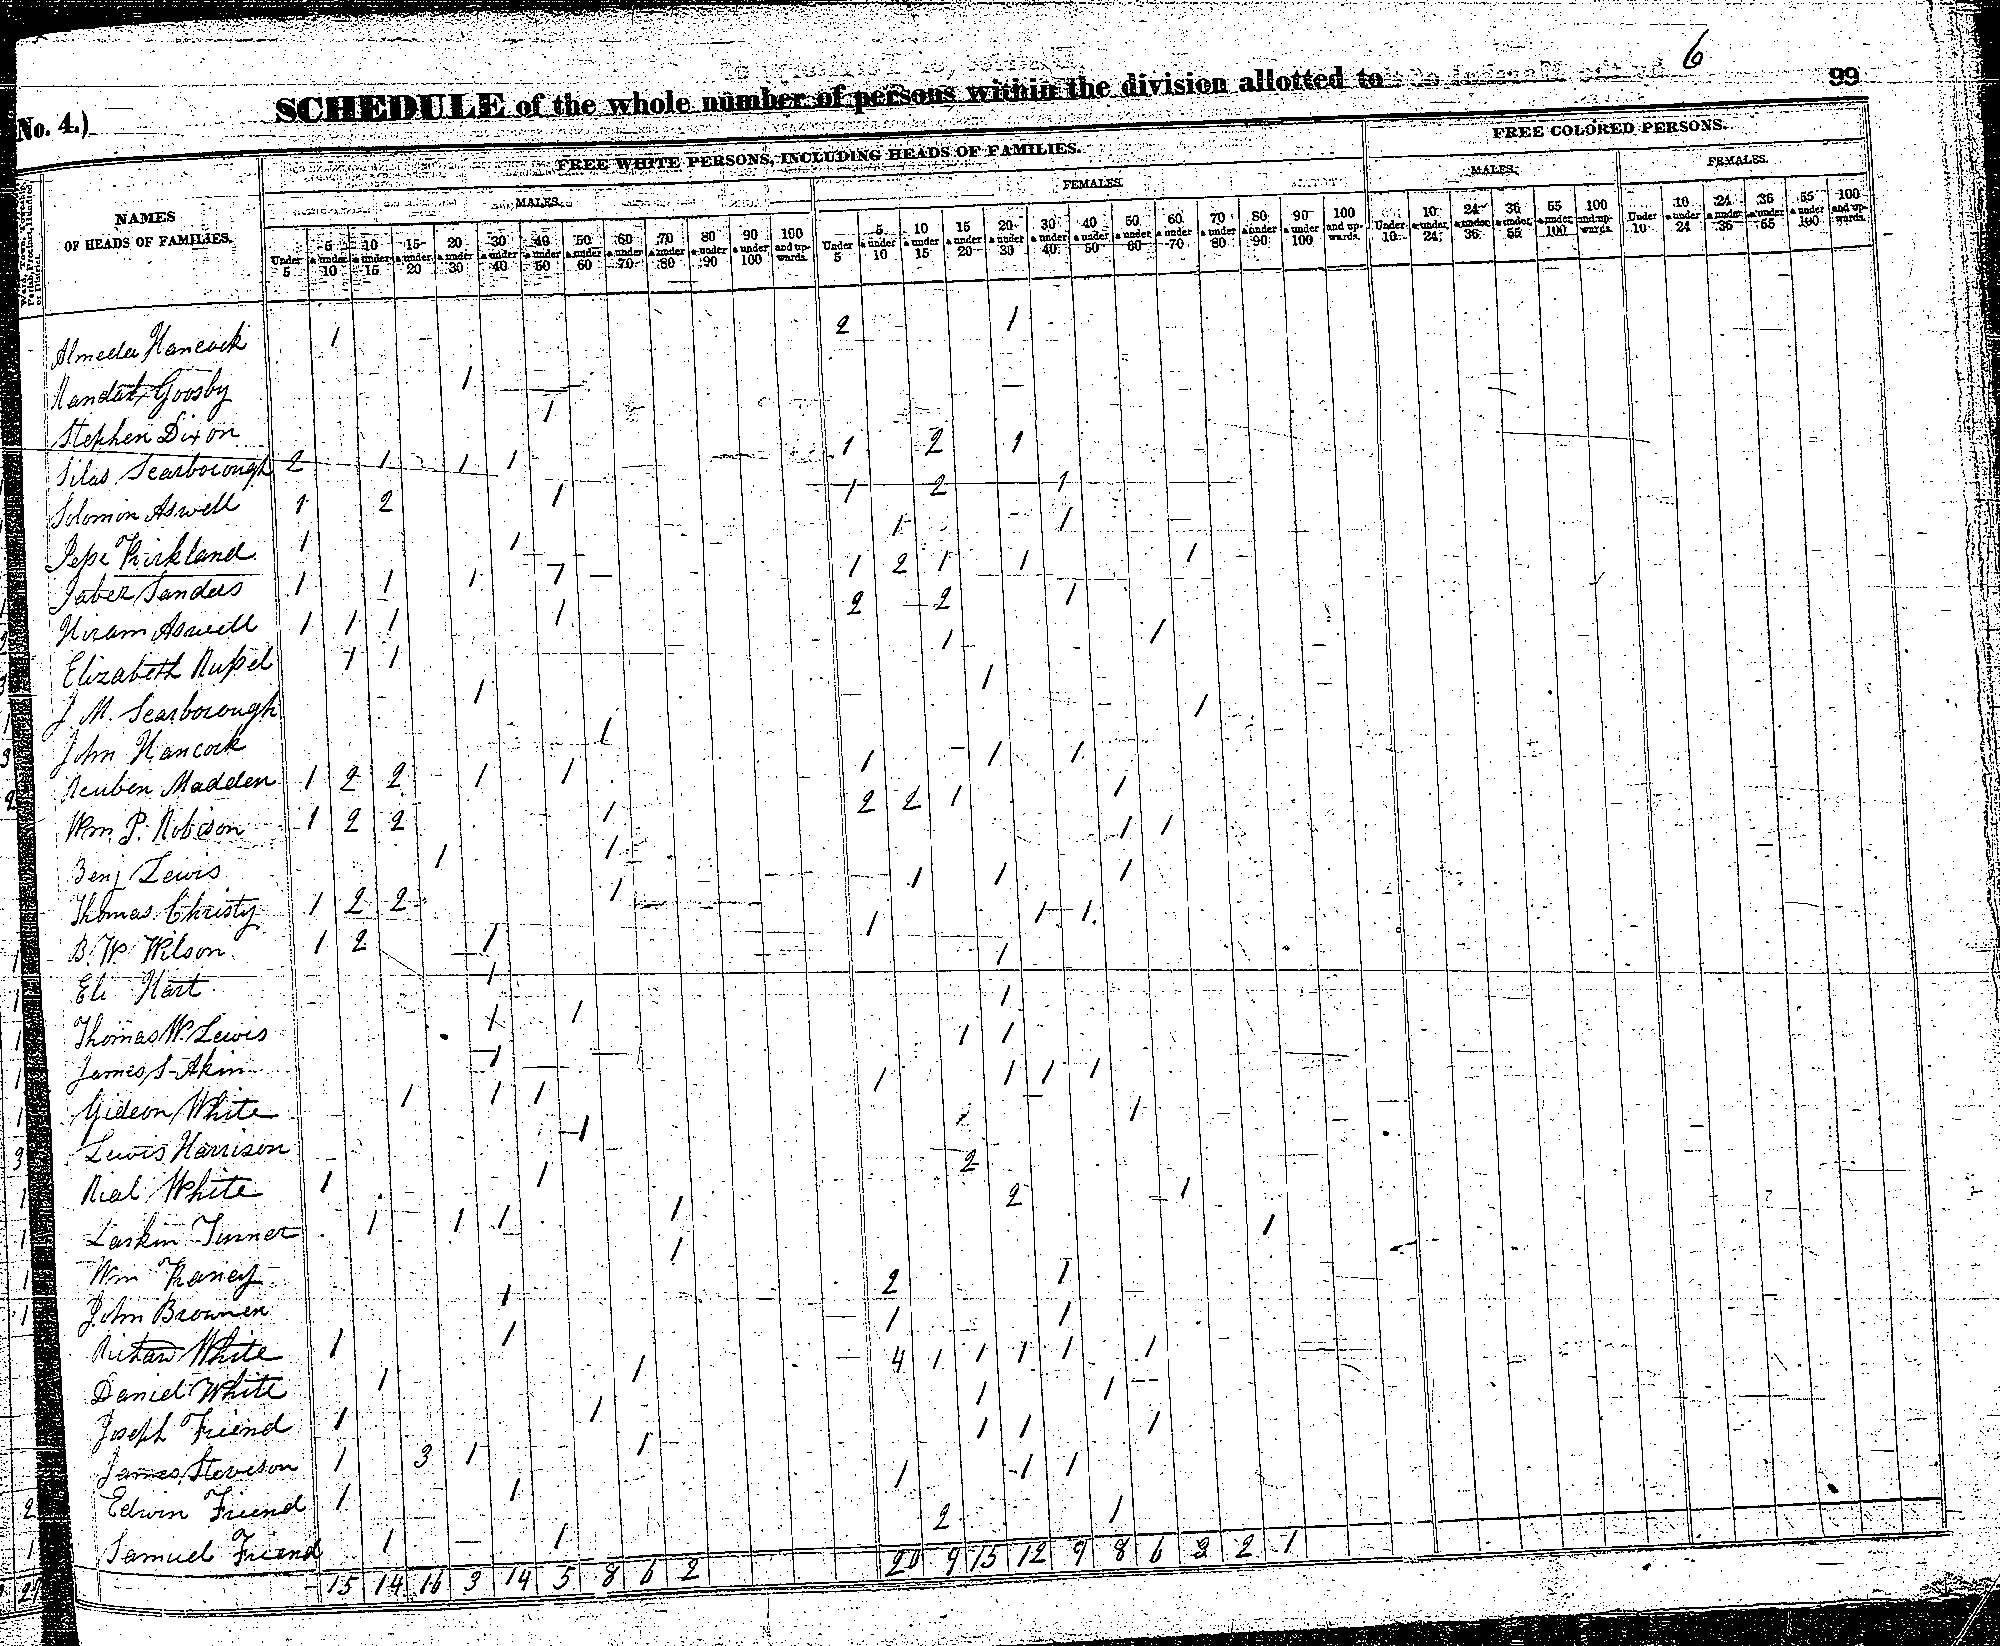 6
99
No. 4.)
SCHEDULE of the whole number of persons within the division allotted to
FREE WHITE PERSONS, INCLUDING HEADS OF FAMILIES.
FREE COLORED PERSONS.
NAMES
OF HEADS OF FAMILIES.
MALES.
FEMALES.
MALES.
FEMALES.
Under 5
5 & under 10
10 & under 15
15 & under 20
20 & under 30
30 & under 40
40 & under 50
50 & under 60
60 & under 70
70 & under 80
80 & under 90
90 & under 100
100 and upwards.
Under 5
5 & under 10
10 & under 15
15 & under 20
20 & under 30
30 & under 40
40 & under 50
50 & under 60
60 & under 70
70 & under 80
80 & under 90
90 & under 100
100 and upwards.
Under 10
10 & under 24
24 & under 36
36 & under 55
55 & under 100
100 and upwards.
Under 10
10 & under 24
24 & under 36
36 & under 55
55 & under 100
100 and upwards.
Almeda Hancock 1 2 1
Goosby 1
Stephen Dixon 1
Silas Scarborough 2 1 1 1 1 2 1
Solomon Aswell 1 2 1 1 2 1
Kirkland 1 1 1 1
Jabez Sanders 1 1 1 1 1 2 1 1 1
Hiram Aswell 1 1 1 1 2 2 1
Elizabeth Rupel 1 1 1 1
J. M. Scarborough 1 1
John Hancock 1 1
Reuben Madden 1 2 2 1 1 1 1 1
Wm. P. Robison 1 2 2 1 2 2 1 1
Benj Lewis 1 1 1 1
Thomas Christy 1 2 2 1 1 1 1
B. W. Wilson 1 2 1 1 1 1
Eli Hart 1 1
Thomas W. Lewis 1 1 1
James S. Akin 1 1 1
Gideon White 1 1 1 1 1 1 1
Lewis Harrison 1 1
Rial White 1 1 2
Larkin Turner 1 1 1 1 2 1
Wm 1 1
John Brownen 1 2 1
White 1 1 1 1
Daniel White 1 1 4 1 1 1 1 1
Joseph Friend 1 1 1 1
James Stevison 1 3 1 1 1 1 1
Edwin Friend 1 1 1 1 1
Samuel Friend 1 1 2 1
15 14 16 3 14 5 8 6 2 20 9 15 12 9 8 6 2 1